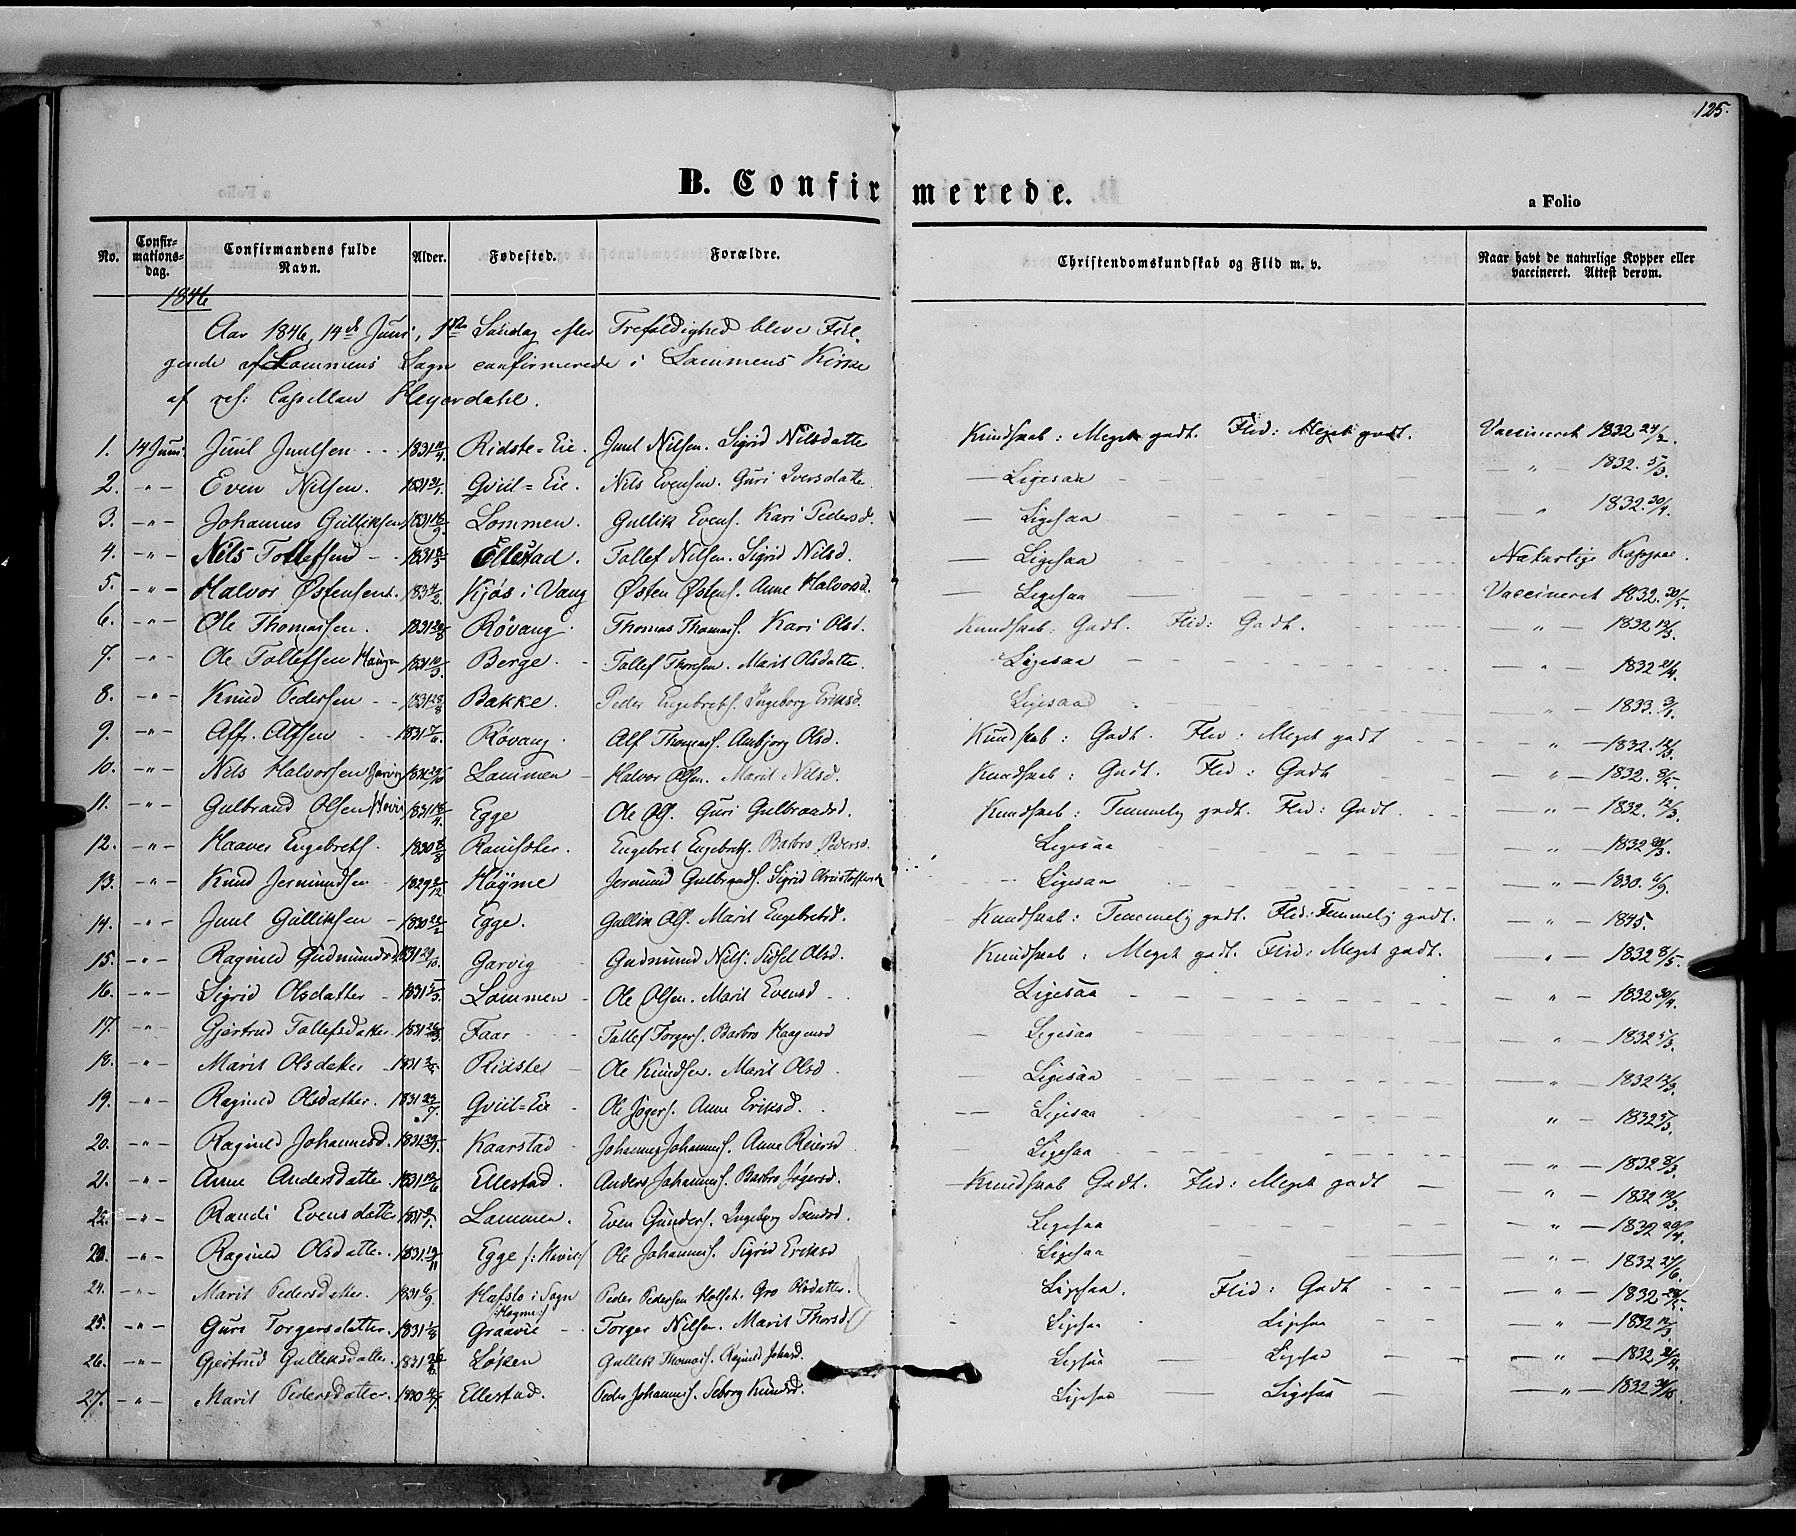 125.
B. Confirmerede.
a Folio
No. Confirmationsdag. Confirmandens fulde Navn. Alder. Fødested. Forældre. Christendomskundskab og Flid m. v. Naar havt de naturlige Kopper eller vaccineret. Attest derom.
1846
Aar 1846, 14de Juni, 1ste Søndag efter Trefoldighed bleve Føl-
gende af Lommens Sogn confirmerede i Lommens Kirke
af res: Capellan Heyerdahl.
1. 14 Juni Juul Juulsen 1831 Ridste-Eie. Juul Nilsen. Sigrid Nilsdatter Kundskab: Meget godt. Flid: Meget godt. Vaccineret 1832 24/2.
2. -"- Even Nilsen. 1831 21/1 Gviil-Eie. Nils Evensen. Guri Iversdatter. — Ligesaa — " — 1832. 5/3.
3. -"- Johannes Gulliksen 1831 Lommen. Gullik Evens. Kari Pedersd. — Ligesaa — " 1832. 30/4.
4. -"- Nils Tollefsen 1831 Ellestad. Tollef Nilsen. Sigrid Nilsd. — Ligesaa Naturlige Kopper.
5. -"- Halvor Østensen 183 Kjøs i Vang Østen Østens. Anne Halvorsd. — Ligesaa Vaccineret 1832. 30/5.
6. -"- Ole Thomassen. 1831 Røvang. Thomas Thomass. Kari Olsd. Kundskab: Godt. Flid: Godt. — " — 1832 12/3.
7. -"- Ole Tollefsen Haugen 1831 Berge. Tollef Thoresen. Marit Olsdatter. — Ligesaa — " — 1832 21/4.
8. -"- Knud Pedersen 1831 28/8 Bakke. Peder Engebrets. Ingeborg Eriksd. Ligesaa " — 1833. 3/1.
9. -"- Alf Alfsen 1831 Røvang. Alf Thomass. Ambjørg Olsd. Kundskab: Godt. Flid: Meget godt — " — 1832. 12/3.
10. -"- Nils Halvorsen Garvig 1831 Lommen Halvor Olsen. Marit Nilsd. Kundskab: Godt. Flid: Godt — " — 1832. 8/5.
11. -"- Gulbrand Olsen 1831 Egge Ole Ols. Guri Gulbrandsd. Kundskab: Temmelig godt. Flid: Godt. — " — 1832. 12/3.
12. -"- Haaver Engebrets. 1830 8/8 Engebret Engebrets. Barbro Pedersd. Ligesaa — " — 1832
13. -"- Knud Jermundsen 1829 Høyme Jermund Gulbrands. Sigrid Christoffersd. Ligesaa — " — 1830. 6/9.
14. -"- Juul Gulliksen 1830 22/2 Egge. Gullik Ols. Marit Engebretsd. Kundskab: Temmelig godt. Flid: Temmelig godt. — " — 1845.
15. -"- Ragnild Gudmundsd. 1831 29/10 Garvig Gudmund Nils. Sidsel Olsd. Kundskab: Meget godt. Flid: Meget godt. " — 1832 8/5.
16. -"- Sigrid Olsdatter 1831 Lommen Ole Olsen. Marit Evensd Ligesaa " — 1832 30/4.
17. -"- Gjertrud Tollefsdatter 1831 Faar Tollef Torgers. Barbro Haagensd Ligesaa " — 1832 5/3.
18. -"- Marit Olsdatter 1831 Ridste Ole Knudsen. Marit Olsd Ligesaa — " — 1832 12/3.
19. -"- Ragnild Olsdatter. 1831 Gviil-Eie Ole Jøgers. Anne Eriksd. Ligesaa " 1832 5/3.
20. -"- Ragnild Johannesd. 1831 Kaarstad Johannes Johanness. Anne Reiersd Ligesaa — " — 1832 8/3.
21. -"- Anne Andersdatter. 1831 Ellestad. Anders Johanness. Barbro Jøgersd. Kundskab Godt. Flid: Meget godt — " — 1832 12/3.
22. -"- Randi Evensdatter 1831 Lommen. Even Gunders. Ingeborg Svendsd. Ligesaa — " — 1832
23. -"- Ragnild Olsdatter. 1831 Egge /: Hovi :/ Ole Johanness. Sigrid Eriksd Ligesaa " — 1832 27/6.
24. -"- Marit Pedersdatter. 1831 6/9. Hafslo i Sogn Peder Pedersen Gro Olsdatter. Ligesaa. Flid: Godt — " — 1832
25. -"- Guri Torgersdatter. 1831 (Høyme:) Graavie Torger Nilsen. Marit Thorsd. Ligesaa Ligesaa " — 1832 12/3.
26. -"- Gjertrud Gulliksdatter. 1831 Løken Gullik Thomass. Ragnild Ligesaa — Ligesaa " — 1832 21/4.
27. -"- Marit Pedersdatter. 1830 Ellestad. Peder Johanness. Siborg Knudsd. Ligesaa Ligesaa — " — 1832